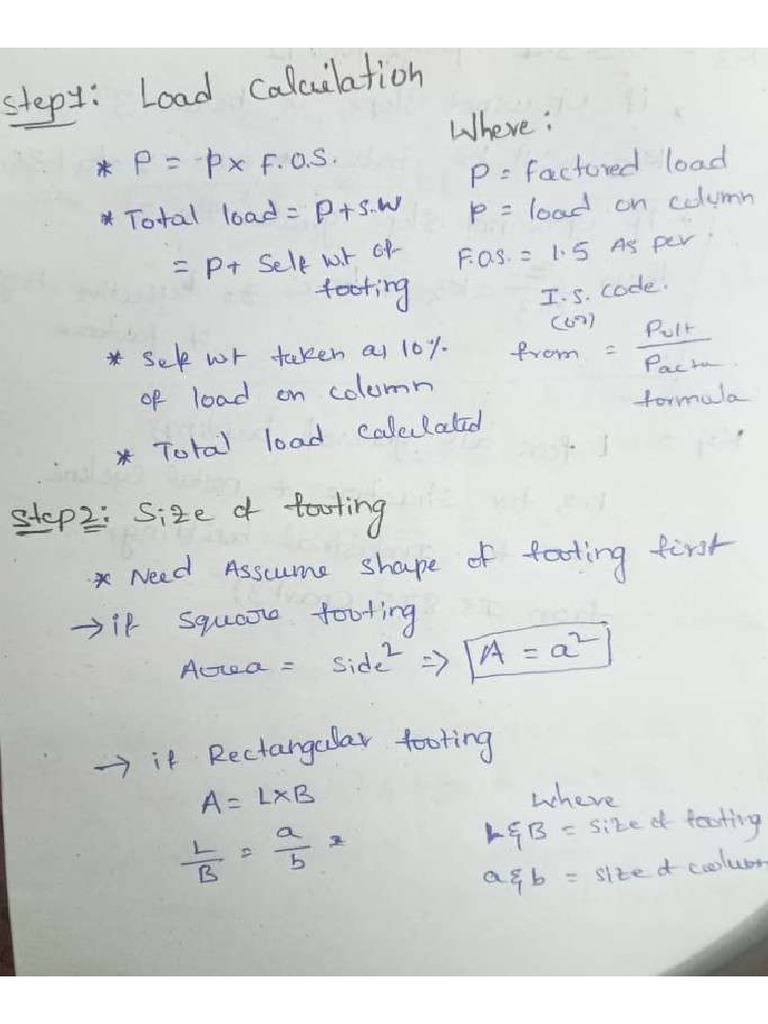 Step1: Load Calculation
Where:
* P = p x F.O.S.
P = factored load
* Total load = P+S.W
p = load on column
= P+ Self wt of footing
F.O.S. = 1.5 As per I.S. code.
(or)
* Self wt taken as 10% of load on column
from = Pult / Pactu formula
* Total load calculated
Step2: Size of footing
* Need Assume shape of footing first
→ if Square footing
Area = side² ⇒ A = a²
→ if Rectangular footing
A = L×B
Where
L/B = a/b
L & B = size of footing
a & b = size of column